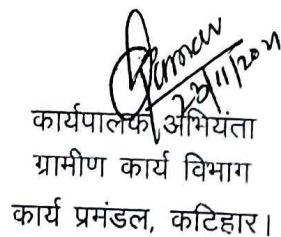 कार्यपालक अभियंता
ग्रामीण कार्य विभाग
कार्य प्रमंडल, कटिहार।